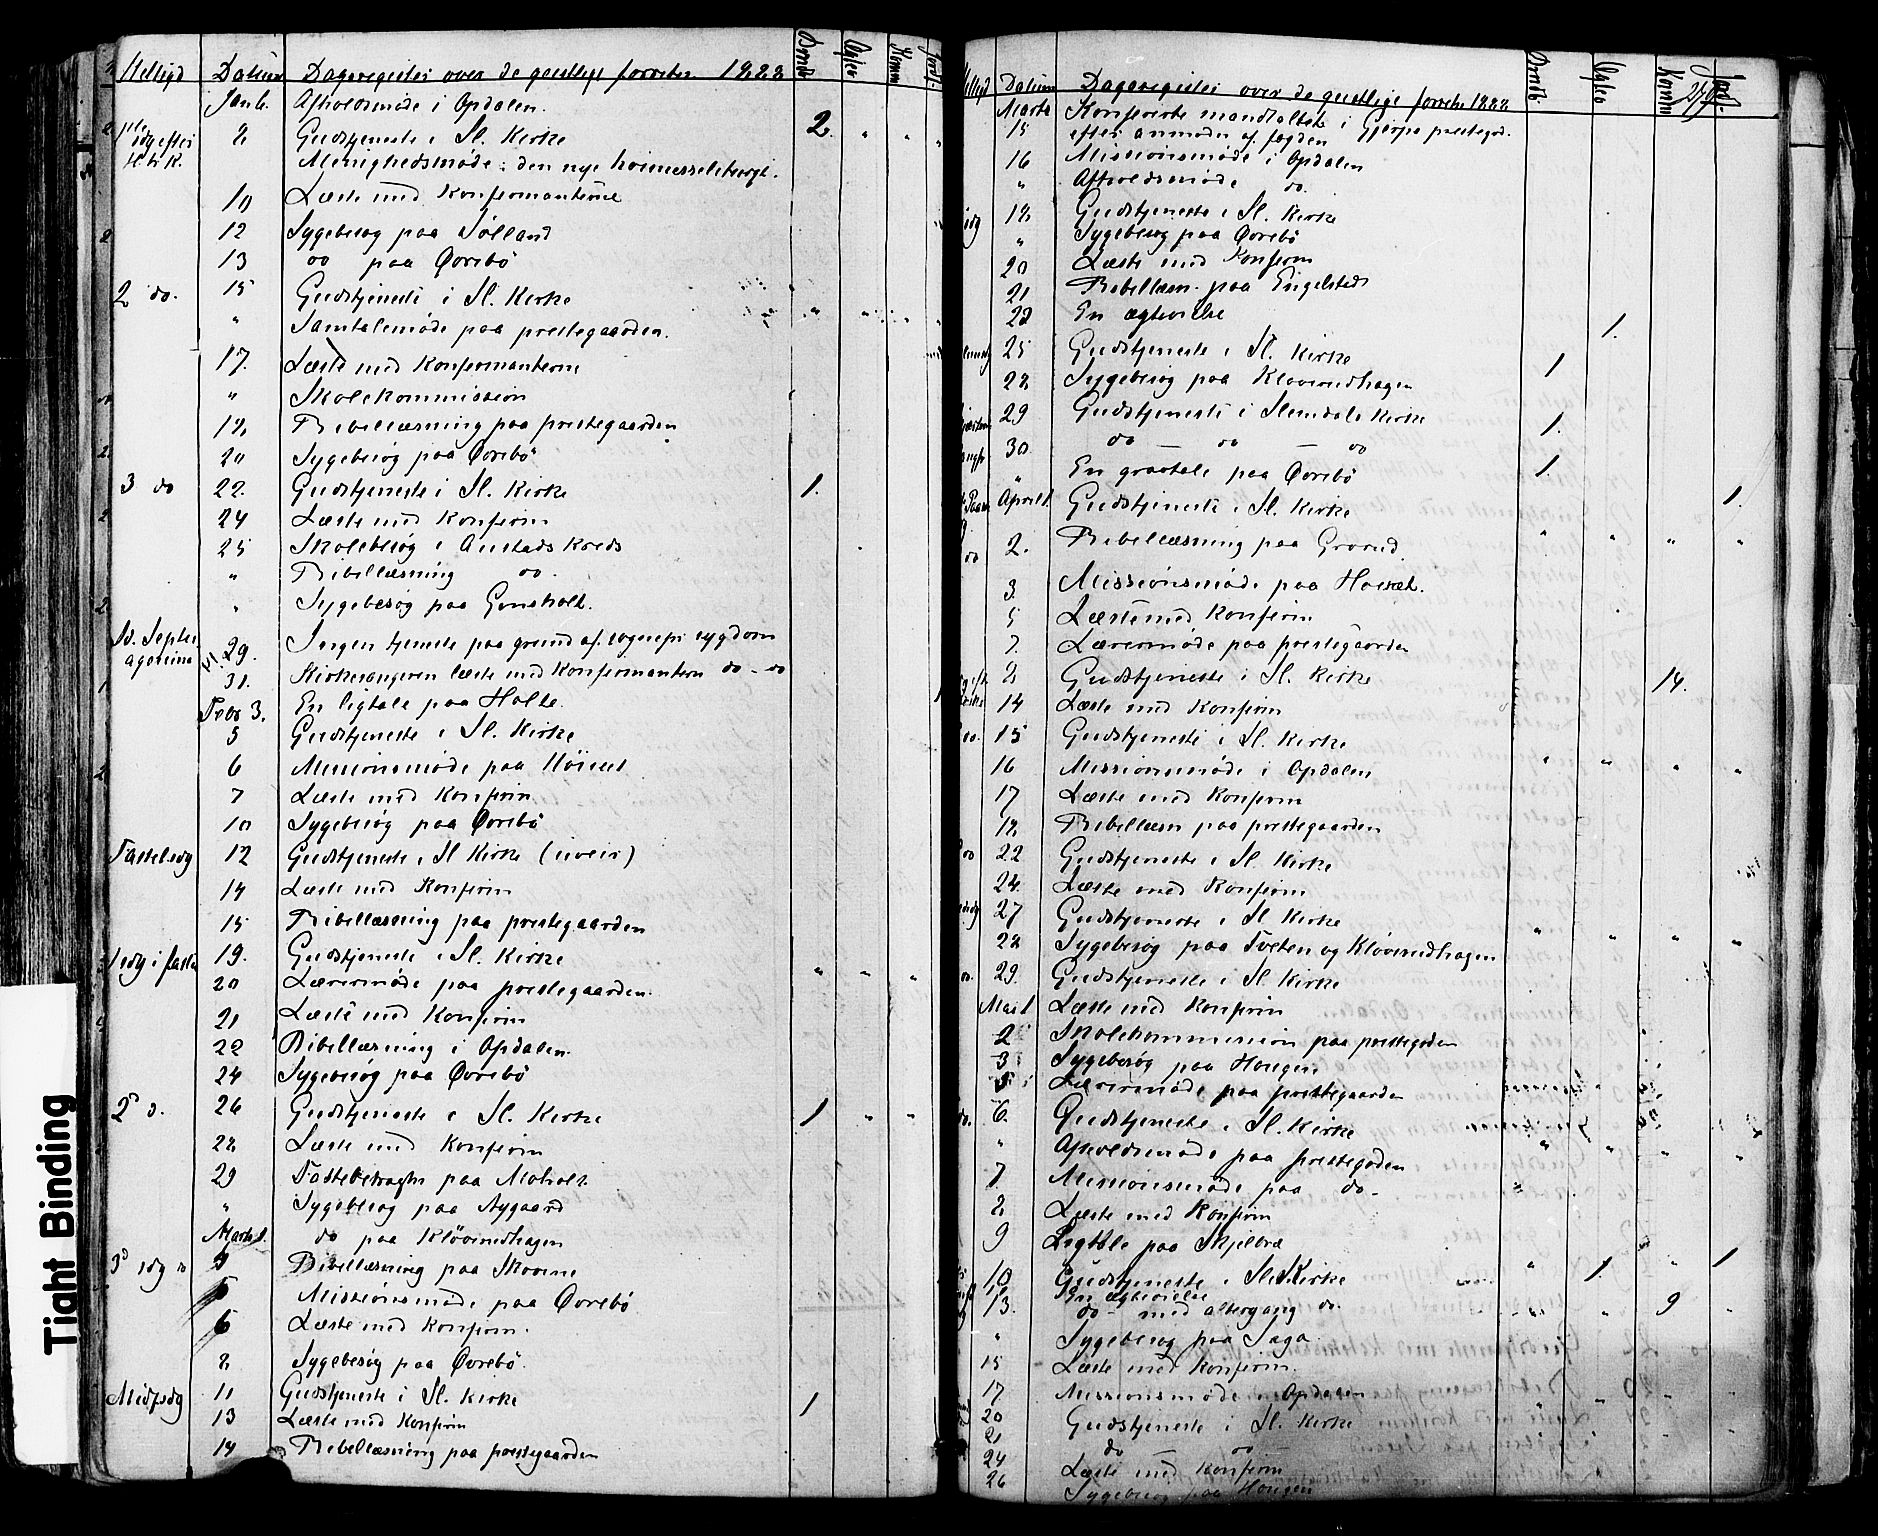 Helligd Datum Dagsregister over de geistlige forretn 1888 Brnd Ægtev Komm Jordf.
Jan 6. Afholdsmøde i Opdalen.
8 Gudstjeneste i Sl. Kirke 2. " "
H 3 K. Menighedsmøde: den nye
10 Læste med Konfirmanterne
12 Sygebesøg paa Jølland
13 do paa Øvrebö
2 do. 15 Gudstjeneste i Sl. Kirke
" Samtalemøde paa prestegaarden.
17. Læste med Konfirmanterne
" Skolekommission
18 Bibellæsning paa prestegaarden
20 Sygebesøg paa Øvrebö
3 do 22. Gudstjeneste i Sl. Kirke 1.
24 Læste med Konfirm
25 Skolebesøg i Anstads Kreds
" Bibellæsning do.
" Sygebesøg paa Gonsholt.
S. Septu
agesima 29. Ingen tjeneste paa grund af sognepr sygdom
31. Kirkesangeren læste med Konfirmantern do - do
Febr 3. En ligtale paa Holte. 1
5 Gudstjeneste i Sl. Kirke
6 Missionsmøde paa
7 Læste med Konfirm
10 Sygebesøg paa Øvrebö
Fastelsdg 12 Gudstjeneste i Sl Kirke (uveir)
14 Læste med Konfirm
15 Bibellæsning paa prestegaarden
1 sdg i faste 19. Gudstjeneste i Sl. Kirke " " "
20 Lærermøde paa prestegaarden.
21 Læste med Konfirm
22 Bibellæsning i Opdalen.
24 Sygebesøg paa Øvrebö
2 s. 26 Gudstjeneste i Sl. Kirke 1 " "
28 Læste med Konfirm
29 Fastebetragtn paa Moholt
" Sygebesøg paa Nygaard
Marts 1. do paa Klövvedhagen
3 sdg 3 Bibellæsning paa
5 Missionsmøde paa Øvrebö
6 Læste med Konfirm.
8 Sygebesøg paa Øvrebö.
Midfsdg 11 Gudstjeneste i Sl. Kirke 1
13 Læste med Konfirm
14 Bibellæsning paa prestegaarden
Helligd Datum Dagsregister over de geistlige forretn 1888 Brndb Ægtev Komm Jordf
Marts
15 Konfererte mandtallet i Gjerpe prestegd.
efter anmodn af fogden
16 Missionsmøde i Opdalen
" Afholdsmøde do.
sdg 18 Gudstjeneste i Sl. Kirke
" Sygebesøg paa Øvrebö
20 Læste med Konfirm
21 Bibellæsn. paa Engelstad
23 En ægtevielse 1.
25 Gudstjeneste i Sl. Kirke 1
28 Sygebesøg paa Klovvedhagen
29 Gudstjeneste i Slemdals Kirke 1.
30 do — do — do
" En gravtale paa Øvrebö 1.
April 1 Gudstjeneste i Sl. Kirke 1.
do 2. Bibellæsning paa Grorud. " " " "
3. Missionsmøde paa
5 Læste med Konfirm
7. Lærermøde paa prestegaarden
8 Gudstjeneste i Sl. Kirke 14.
14 Læste med Konfirm
do. 15 Gudstjeneste i Sl. Kirke
16 Missionsmøde i Opdalen " " " "
17 Læste med Konfirm
18 Bibellæsn paa prestegaarden
do 22 Gudstjeneste i Sl. Kirke
24. Læste med Konfirm
27 Gudstjeneste i Sl. Kirke
28 Sygebesøg paa Tveten og Klöverudhagen " " " "
do. 29. Gudstjeneste i Sl. Kirke
Mai 1 Læste med Konfirm
2 Skolekommission paa prestegden
3 Sygebesøg paa Haugen
5 Lærermøde paa prestegaarden
do. 6. Gudstjeneste i Sl. Kirke
" Afholdsmøde paa prestegaden " " " "
7. Missionsmøde paa do-
8 Læste med Konfirm
9 Ligtale paa Skjelbræ
10 Gudstjeneste i Sl. Kirke " 1. " 1
En ægtevielse
13. do - med altergang do. " 9 "
" Sygebesøg paa Saga
15 Læste med Konfirm.
17 Missionsmøde i Opdalen
20 Gudstjeneste i Sl. Kirke
21 do — do —
24 Læste med Konfirm
26 Sygebesøg paa Haugen
Tight Binding